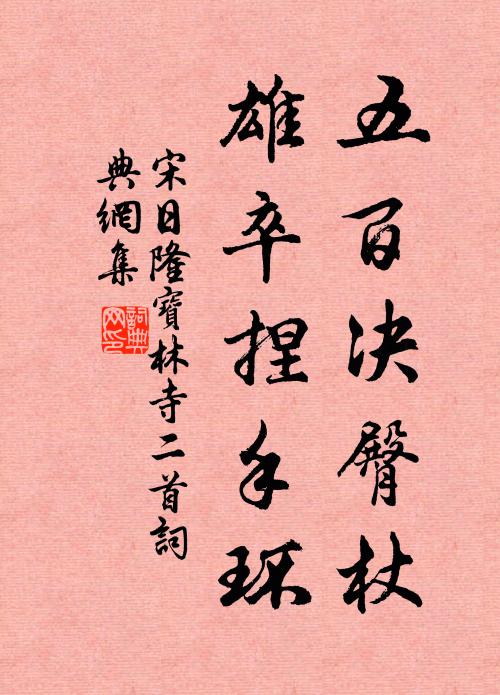 五百决臀杖
雄卒捏手环
宋日隆寶林寺二首詞
典網集
詞典网印